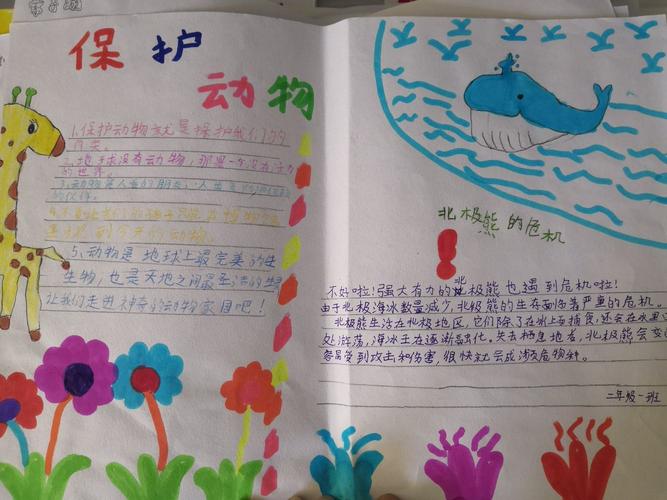 保护
动物
1.保护动物就是保护我们的
同类。
2.地球没有动物，那里一方没有活力
的世界。
3.动物是人类的朋友，人类
的伙伴。
4.不要让我们的孩子只能在博物馆
里才见到今天的动物。
5、动物是地球上最完美的生
生物，也是天地之间最圣洁的
让我们走进神奇的动物家园吧！
北极熊的危机
不好啦！强大有力的北极熊也遇到危机啦！
由于北极海冰数量减少，北极熊的生存面临着严重的危机。
北极熊生活在北极地区，它们除了在冰上面捕食，还会在水里
处游荡，海冰正在逐渐融化。失去栖息地者，北极熊会
受到攻击和伤害，很快就会成为濒危物种。
二年级一班